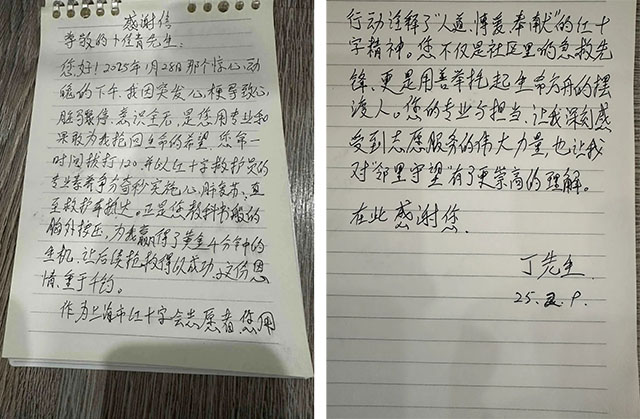 感谢信
尊敬的卜佳青先生:
您好!2025年1月28日那个惊心动
魄的下午,我因突发心梗导致心
脏骤停、意识全无,是您用专业和
果敢为我抢回生命的希望。您第一
时间拨打120,并以红十字救护员的
专业素养争分夺秒实施心肺复苏,直
至救护车抵达。正是您教科书般的
胸外按压,为我赢得了黄金4分钟的
生机,让后续抢救得以成功,这份恩
情重于千钧。
作为上海市红十字会志愿者,您用
行动诠释了“人道、博爱、奉献”的红十
字精神。您不仅是社区里的急救先
锋,更是用善举托起生命方舟的摆
渡人。您的专业与担当,让我深刻感
受到志愿服务的伟大力量,也让我
对“邻里守望”有了更崇高的理解。
在此感谢您.
丁先生
25. 2. 9.